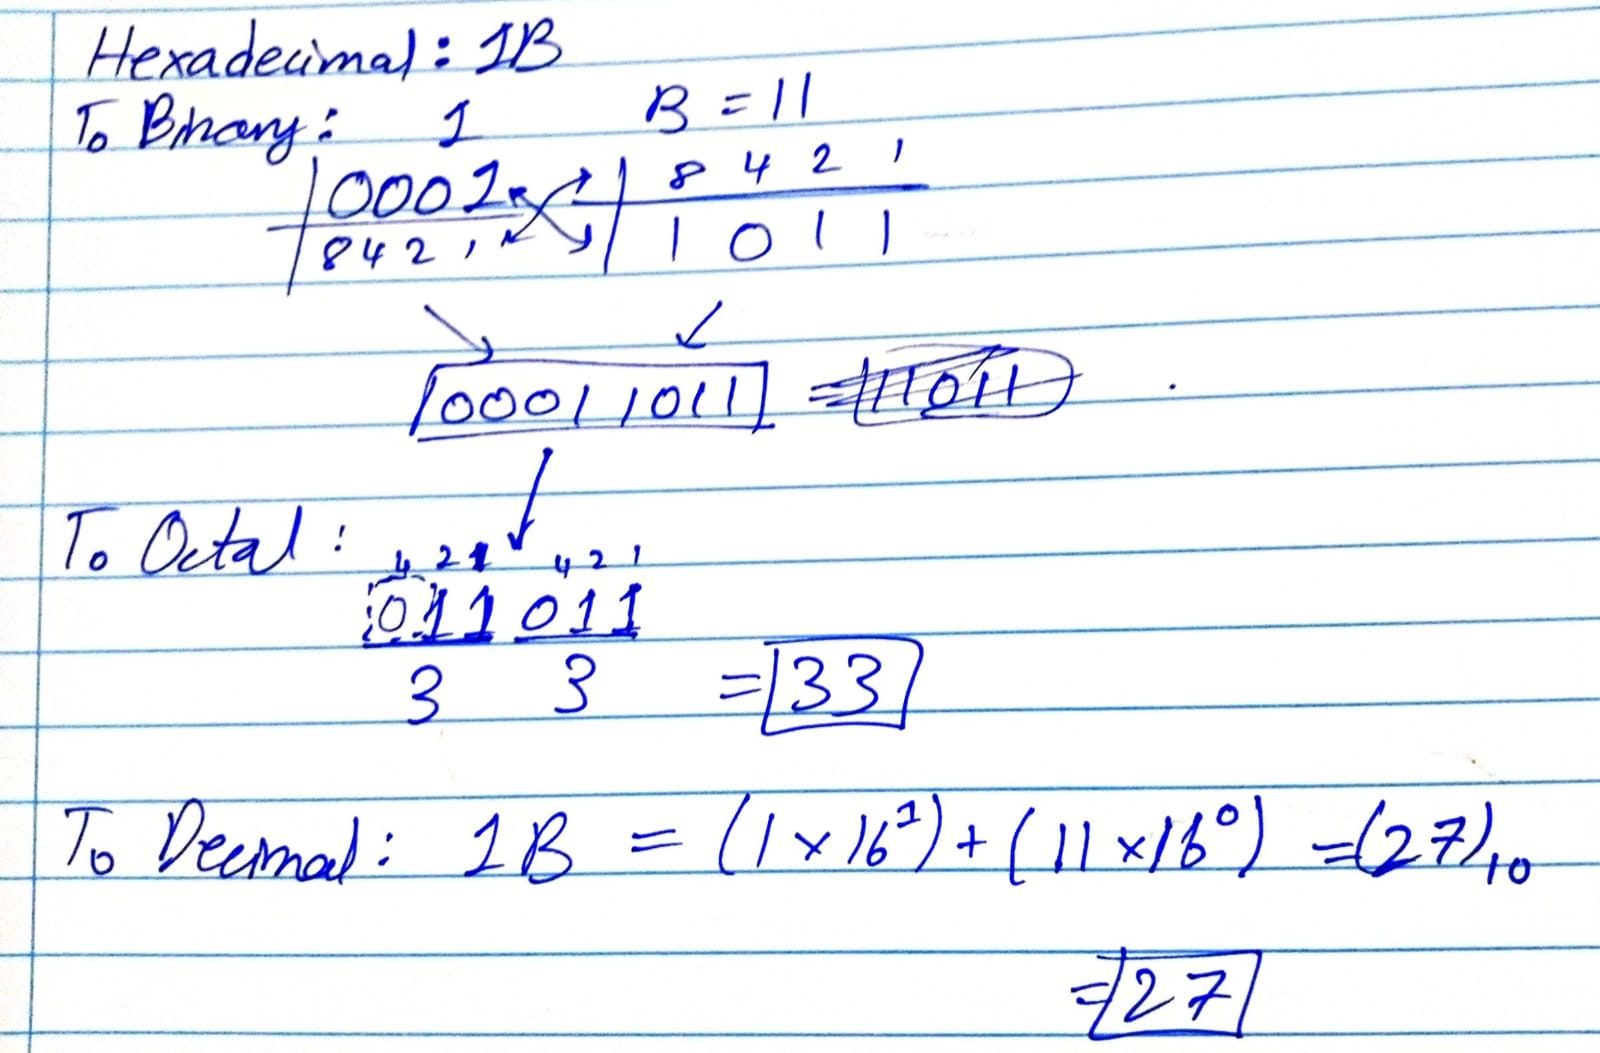 Hexadecimal: 1B
To Binary: 1 B = 11
0001 8 4 2 1
8 4 2 1 1 0 1 1
00011011
To Octal: 4 2 1 4 2 1
011 011
3 3 = 33
To Decimal: 1B = (1 x 16¹) + (11 x 16⁰) = (27)₁₀
= 27